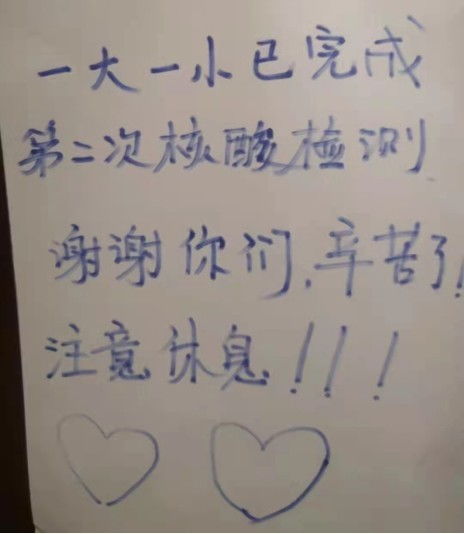 一大一小已完成
第二次核酸检测
谢谢你们,辛苦了!
注意休息!!!